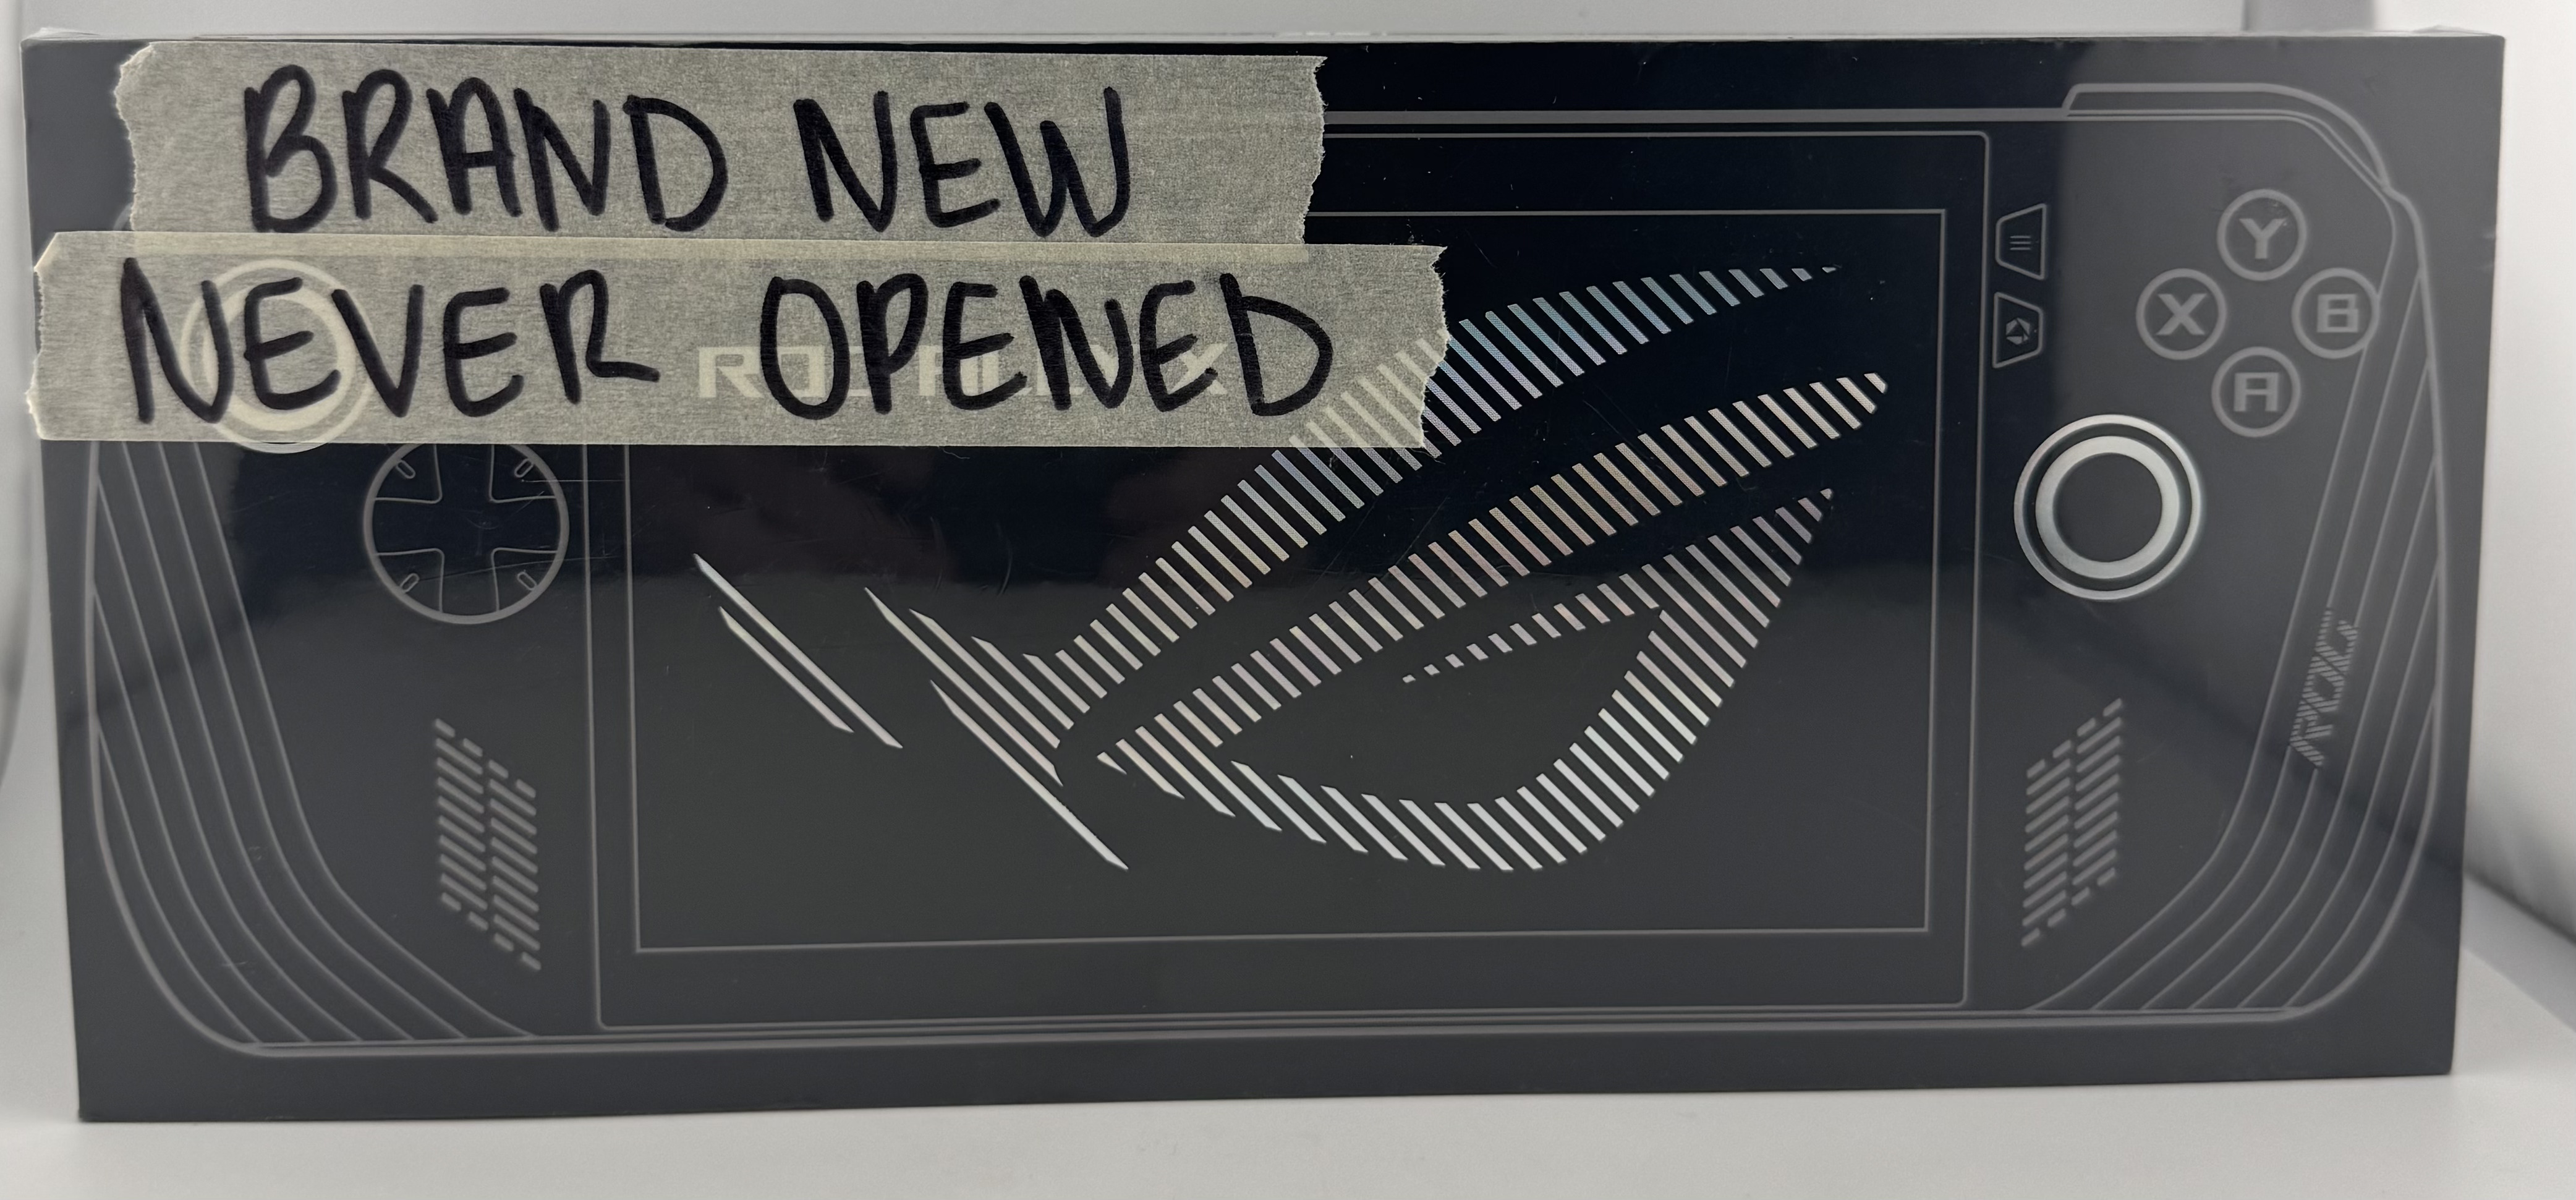 BRAND NEW
NEVER OPENED
ROG ALLY X
Y
X
B
A
ROG